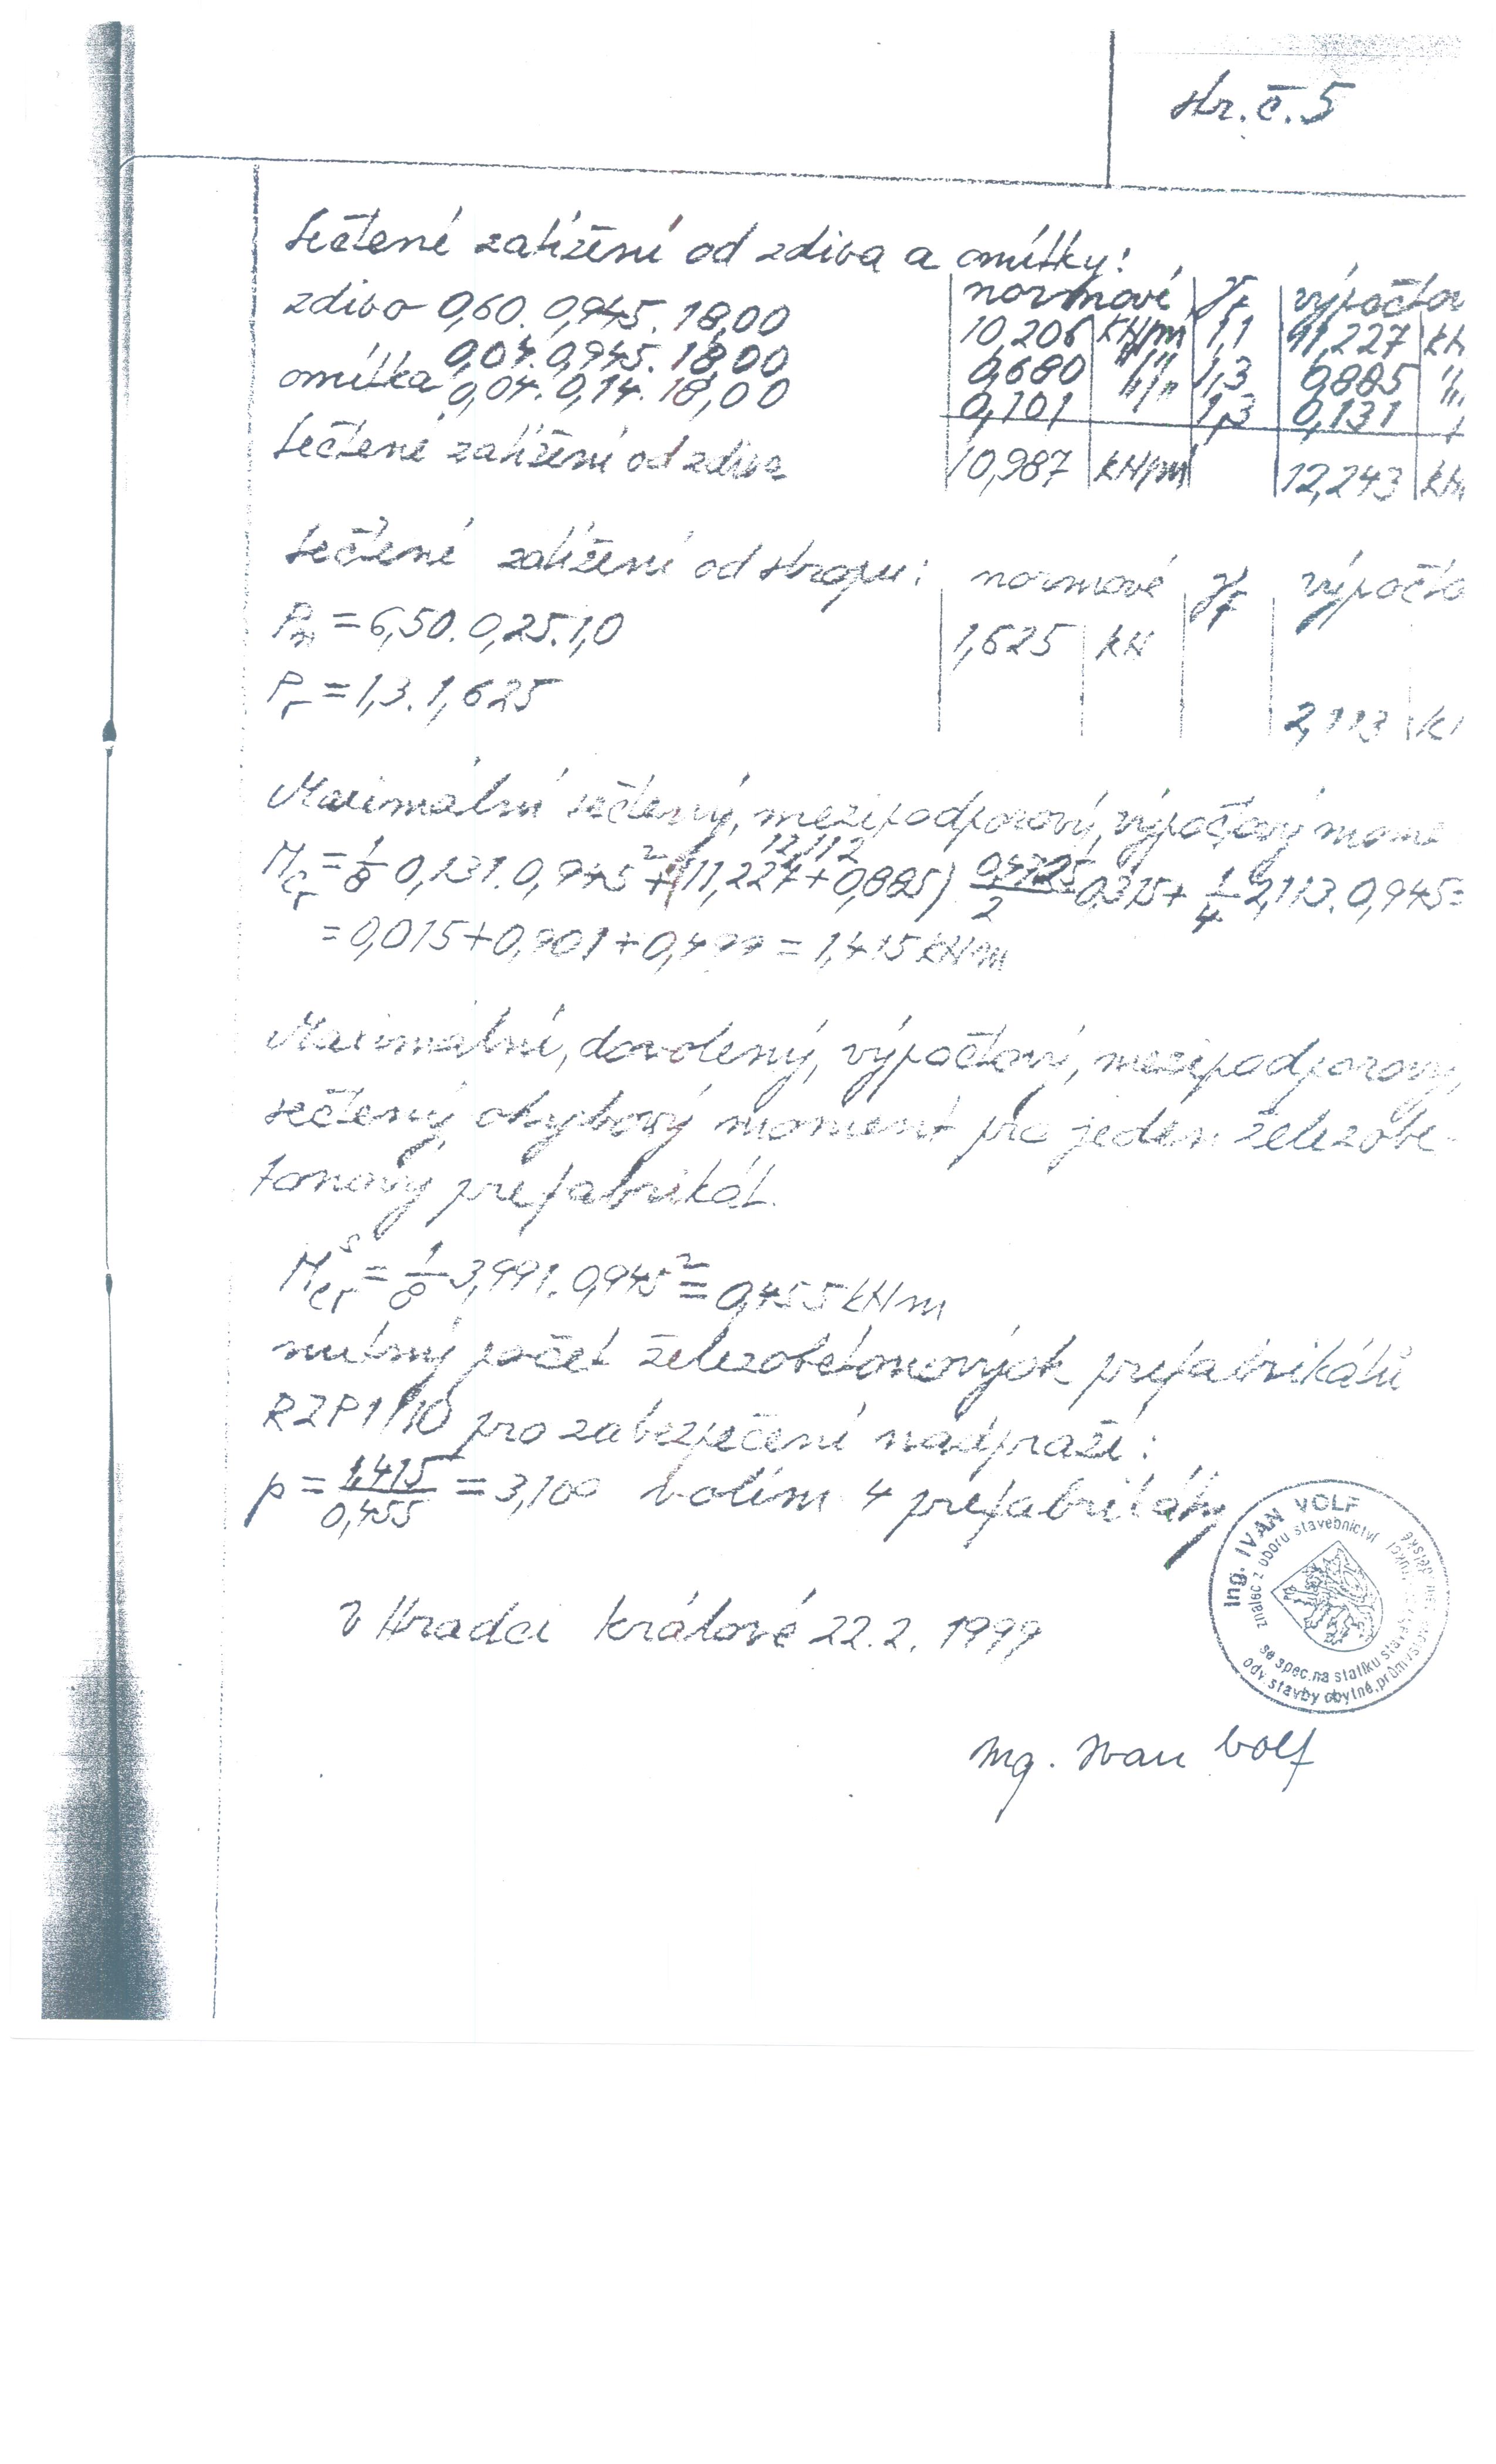 str. č. 5
Sečtené zatížení od zdiva a omítky:
normové γf výpočtov
zdivo 0,60. 0,945. 18,00 10,206 kN/m 1,1 11,227 kN
0,04. 0,945. 18,00 0,680 "/" 1,3 0,885 "
omítka 0,04. 0,14. 18,00 0,101 1,3 0,131
Sečtené zatížení od zdiva 10,987 kN/m 12,243 kN
Sečtené zatížení od stropu: normové γf výpočto
Pn = 6,50. 0,25. 1,0 1,625 kN
Pr = 1,3. 1,625 2,113 k
Maximální sečtený, mezipodporový, výpočtový mome
12,112
Mcr = 1/8 0,131. 0,945² + (11,227 + 0,885) 0,4725/2 0,315 + 1/4 2,113. 0,945 =
= 0,015 + 0,901 + 0,499 = 1,415 kNm
Maximální, dovolený, výpočtový, mezipodporový,
sečtený ohybový moment pro jeden železobe-
tonový prefabrikát.
Mcrs = 1/8 3,991. 0,945² = 0,455 kNm
nutný počet železobetonových prefabrikátů
RZP 1/10 pro zabezpečení nadpraží:
p = 1,415/0,455 = 3,100 volím 4 prefabrikáty
Ing. IVAN VOLF
znalec z oboru stavebnictví
se spec. na statiku
odv. stavby obytné, průmyslové
V Hradci Králové 22. 2. 1999
Ing. Ivan Volf